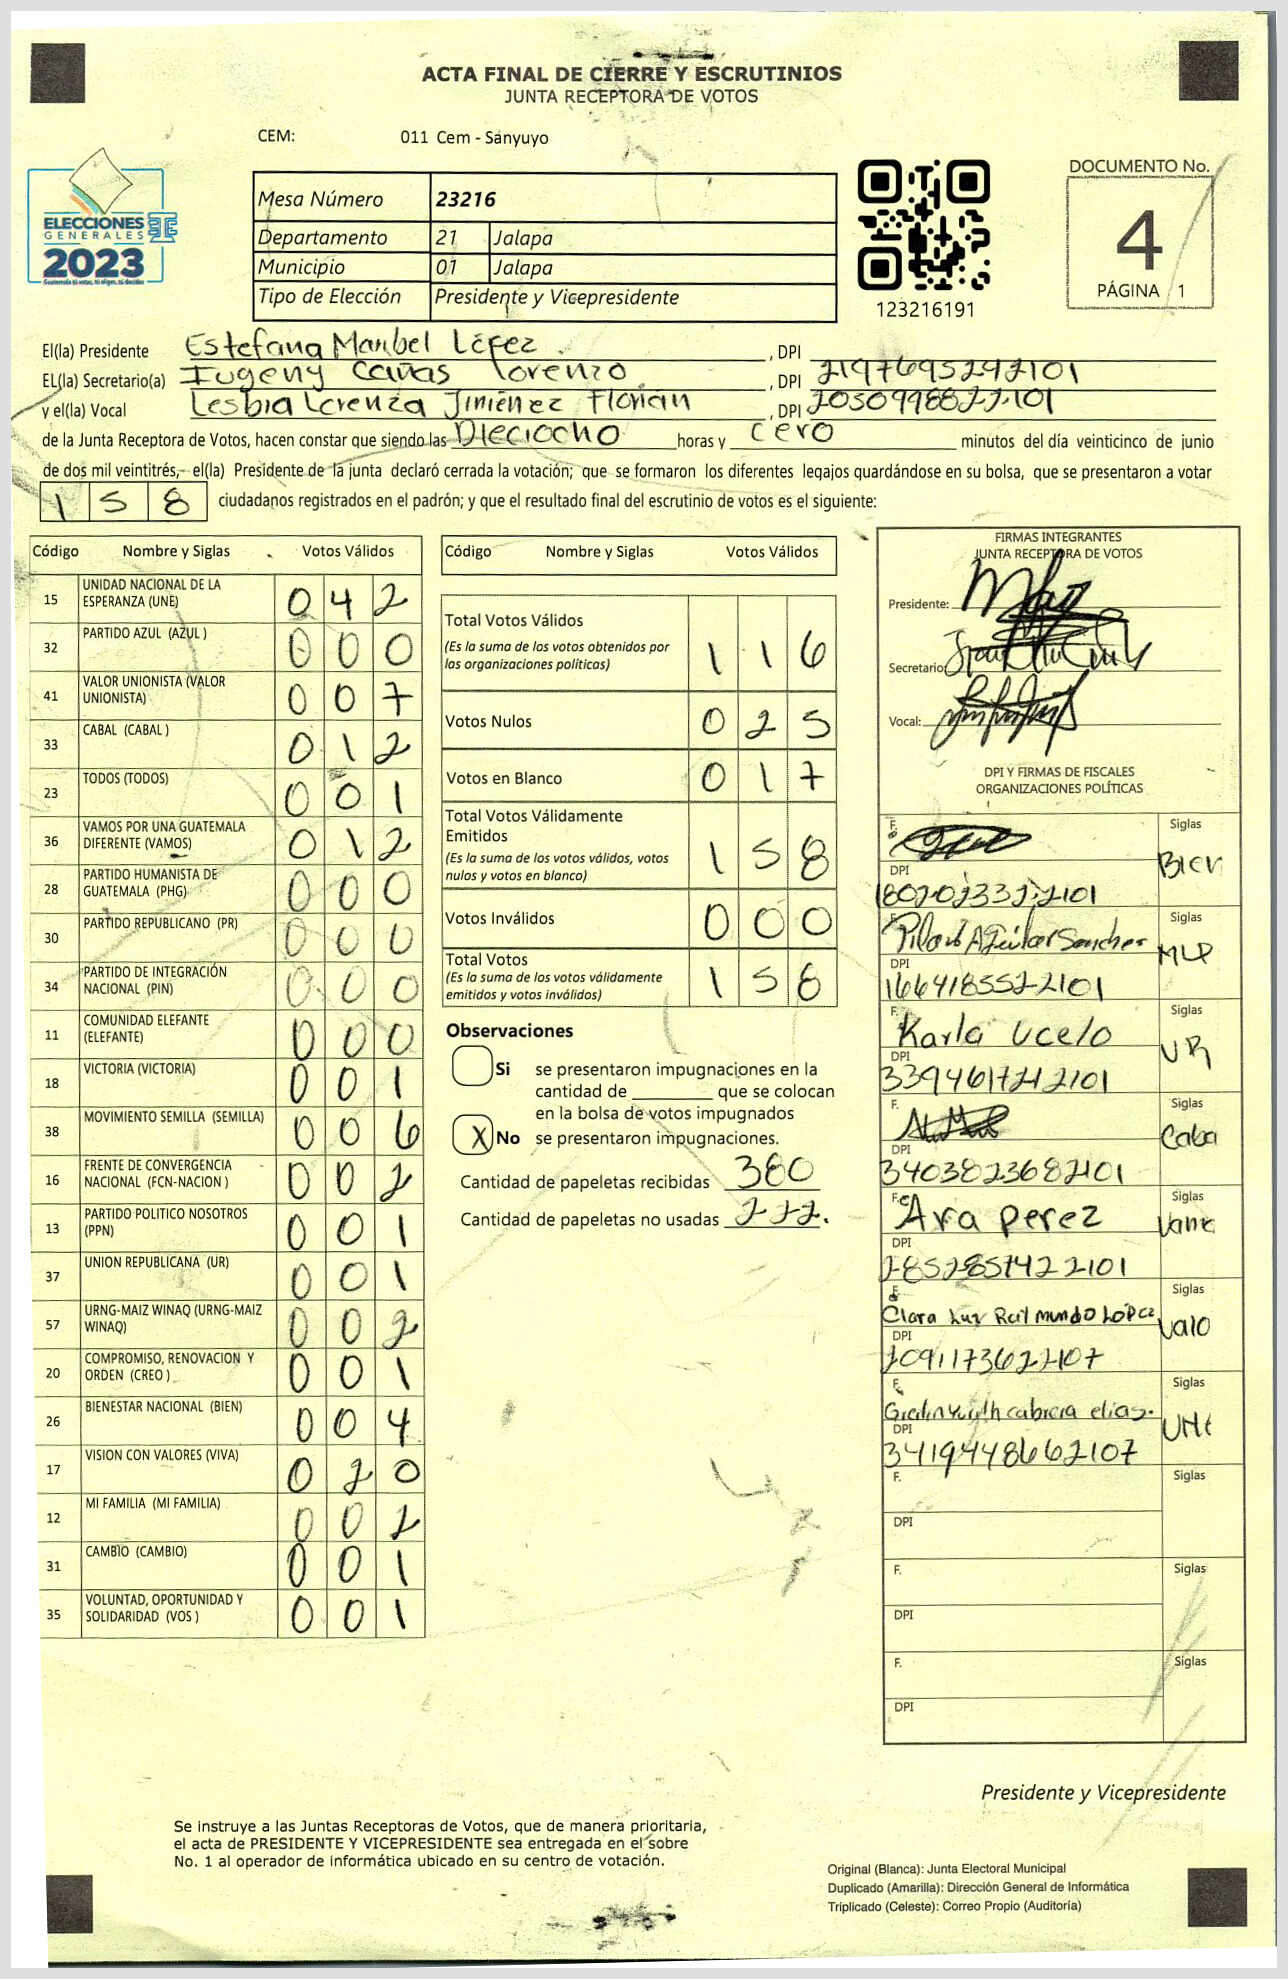 ACTA FINAL DE CIERRE Y ESCRUTINIOS
JUNTA RECEPTORA DE VOTOS
CEM: 011 Cem - Sanyuyo
ELECCIONES
GENERALES
2023
Mesa Número 23216
Departamento 21 Jalapa
Municipio 01 Jalapa
Tipo de Elección Presidente y Vicepresidente
123216191
DOCUMENTO No.
4
PÁGINA 1
El(la) Presidente Estefana Maribel López , DPI
EL(la) Secretario(a) Iugeny Cañas Lorenzo , DPI 2197695242101
y el(la) Vocal Lesbia Lorenza Jiménez Florian , DPI
de la Junta Receptora de Votos, hacen constar que siendo las Dieciocho horas y cero minutos del día veinticinco de junio
de dos mil veintitrés, el(la) Presidente de la junta declaró cerrada la votación; que se formaron los diferentes legajos guardándose en su bolsa, que se presentaron a votar
158 ciudadanos registrados en el padrón; y que el resultado final del escrutinio de votos es el siguiente:
Código Nombre y Siglas Votos Válidos
15 UNIDAD NACIONAL DE LA ESPERANZA (UNE) 042
32 PARTIDO AZUL (AZUL ) 000
41 VALOR UNIONISTA (VALOR UNIONISTA) 007
33 CABAL (CABAL ) 012
23 TODOS (TODOS) 001
36 VAMOS POR UNA GUATEMALA DIFERENTE (VAMOS) 012
28 PARTIDO HUMANISTA DE GUATEMALA (PHG) 000
30 PARTIDO REPUBLICANO (PR) 000
34 PARTIDO DE INTEGRACIÓN NACIONAL (PIN) 000
11 COMUNIDAD ELEFANTE (ELEFANTE) 000
18 VICTORIA (VICTORIA) 001
38 MOVIMIENTO SEMILLA (SEMILLA) 006
16 FRENTE DE CONVERGENCIA NACIONAL (FCN-NACION ) 002
13 PARTIDO POLITICO NOSOTROS (PPN) 001
37 UNION REPUBLICANA (UR) 001
57 URNG-MAIZ WINAQ (URNG-MAIZ WINAQ) 002
20 COMPROMISO, RENOVACION Y ORDEN (CREO ) 001
26 BIENESTAR NACIONAL (BIEN) 004
17 VISION CON VALORES (VIVA) 020
12 MI FAMILIA (MI FAMILIA) 002
31 CAMBIO (CAMBIO) 001
35 VOLUNTAD, OPORTUNIDAD Y SOLIDARIDAD (VOS ) 001
Código Nombre y Siglas Votos Válidos
Total Votos Válidos 116
(Es la suma de los votos obtenidos por las organizaciones políticas)
Votos Nulos 025
Votos en Blanco 017
Total Votos Válidamente Emitidos 158
(Es la suma de los votos válidos, votos nulos y votos en blanco)
Votos Inválidos 000
Total Votos 158
(Es la suma de los votos válidamente emitidos y votos inválidos)
Observaciones
Si se presentaron impugnaciones en la
cantidad de ________ que se colocan
en la bolsa de votos impugnados
X No se presentaron impugnaciones.
Cantidad de papeletas recibidas 380
Cantidad de papeletas no usadas 222.
FIRMAS INTEGRANTES
JUNTA RECEPTORA DE VOTOS
Presidente:
Secretario:
Vocal:
DPI Y FIRMAS DE FISCALES
ORGANIZACIONES POLÍTICAS
F. Siglas Bien
DPI
F. Pilar Aguilar Sanches Siglas MLP
DPI 1664185522101
F. Karla Ucelo Siglas UR
DPI 3394617212101
F. Siglas Caba
DPI 3403823682101
F. Ara perez Siglas
DPI 2852851422101
F. Clara Luz Raimundo López Siglas Valo
DPI 2091173622107
F. cabrera elias. Siglas UNE
DPI 3419448662107
F. Siglas
DPI
F. Siglas
DPI
F. Siglas
DPI
Presidente y Vicepresidente
Se instruye a las Juntas Receptoras de Votos, que de manera prioritaria,
el acta de PRESIDENTE Y VICEPRESIDENTE sea entregada en el sobre
No. 1 al operador de informática ubicado en su centro de votación.
Original (Blanca): Junta Electoral Municipal
Duplicado (Amarilla): Dirección General de Informática
Triplicado (Celeste): Correo Propio (Auditoría)